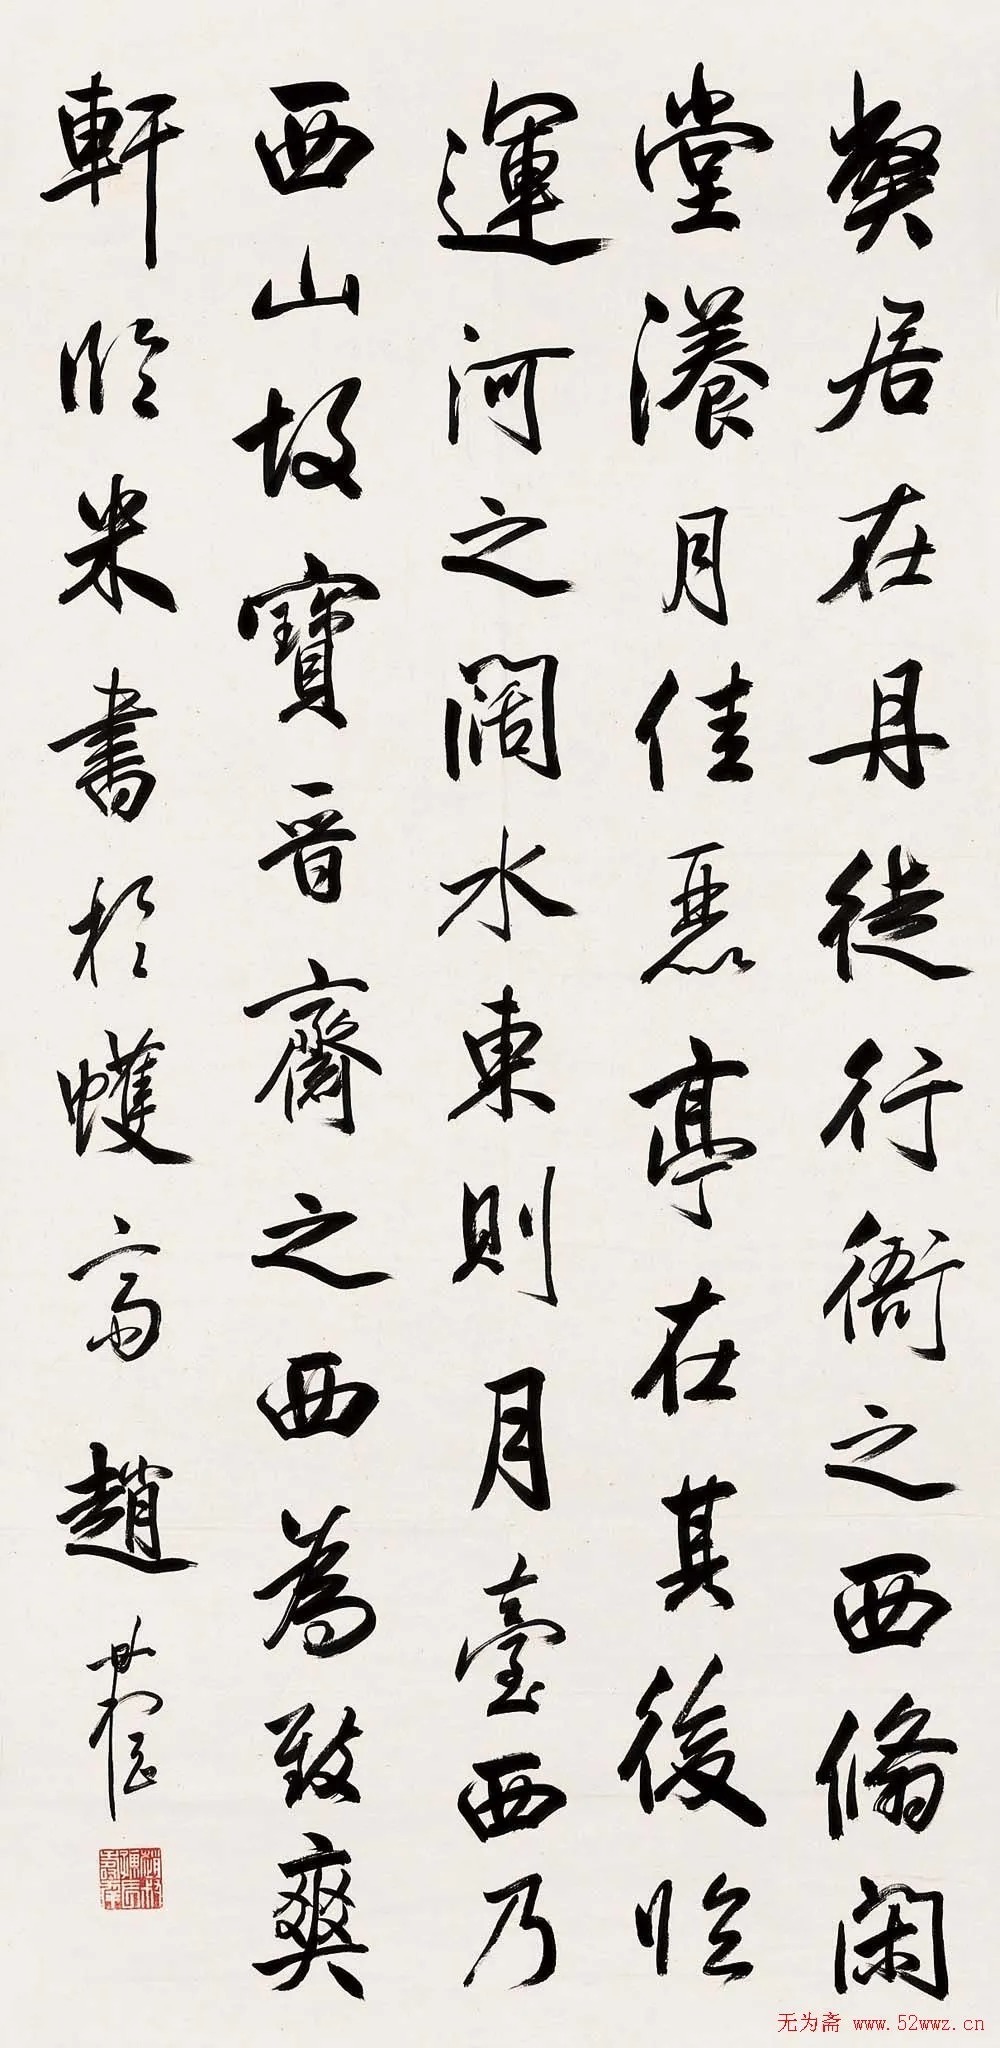 獘居在丹徒行衙之西翛閑
堂漾月佳麗亭在其後臨
運河之闊水東則月臺西乃
西山故寶晉齋之西為致爽
軒臨米書於蠖齋趙
无为斋 www.52wwz.cn